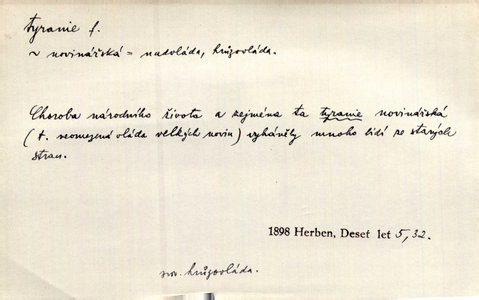 tyranie f.
~ novinářská = nadvláda, hrůzovláda.
Choroba národního života a zejména ta tyranie novinářská
(t. neomezená vláda velkých novin) vyháněly mnoho lidí ze starých
stran.
1898 Herben, Deset let 5, 32.
srv. hrůzovláda.